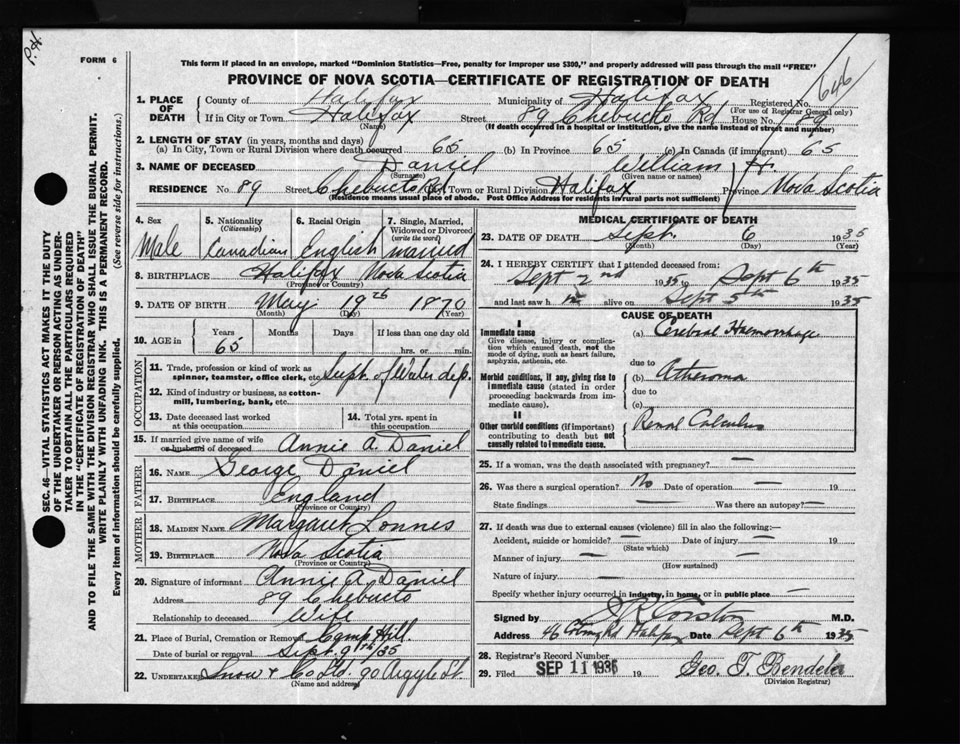 P.H.
FORM 6
This form if placed in an envelope, marked "Dominion Statistics—Free, penalty for improper use $300," and properly addressed will pass through the mail "FREE"
PROVINCE OF NOVA SCOTIA—CERTIFICATE OF REGISTRATION OF DEATH
646
1. PLACE OF DEATH { County of Halifax Municipality of Halifax Registered No.
(For use of Registrar General only)
If in City or Town Halifax Street 89 Chebucto Rd House No. 89
(Name) (If death occurred in a hospital or institution, give the name instead of street and number)
2. LENGTH OF STAY (in years, months and days)
(a) In City, Town or Rural Division where death occurred 65 (b) In Province 65 (c) In Canada (if immigrant) 65
3. NAME OF DECEASED Daniel William H.
(Surname) (Given name or names)
RESIDENCE No. 89 Street Chebucto Rd Town or Rural Division Halifax Province Nova Scotia
(Residence means usual place of abode. Post Office Address for residents in rural parts not sufficient)
4. Sex Male
5. Nationality (Citizenship) Canadian
6. Racial Origin English
7. Single, Married, Widowed or Divorced (write the word) married
8. BIRTHPLACE Halifax Nova Scotia
(Province or Country)
9. DATE OF BIRTH May 19th 1870
(Month) (Day) (Year)
10. AGE in Years Months Days If less than one day old
65 hrs. or min.
OCCUPATION
11. Trade, profession or kind of work as spinner, teamster, office clerk, etc. Supt. of Water dep.
12. Kind of industry or business, as cotton-mill, lumbering, bank, etc.
13. Date deceased last worked at this occupation
14. Total yrs. spent in this occupation
15. If married give name of wife or husband of deceased Annie A. Daniel
FATHER
16. NAME George Daniel
17. BIRTHPLACE England
(Province or Country)
MOTHER
18. MAIDEN NAME Margaret
19. BIRTHPLACE Nova Scotia
(Province or Country)
20. Signature of informant Annie A. Daniel
Address 89 Chebucto
Relationship to deceased Wife
21. Place of Burial, Cremation or Removal Camp Hill.
Date of burial or removal Sept. 9th/35
22. UNDERTAKER Snow & Co Ltd 90 Argyle St.
(Name and address)
MEDICAL CERTIFICATE OF DEATH
23. DATE OF DEATH Sept. 6 1935
(Month) (Day) (Year)
24. I HEREBY CERTIFY that I attended deceased from:
Sept 2nd 1935 to Sept 6th 1935
and last saw h im alive on Sept 5th 1935
CAUSE OF DEATH
I
Immediate cause (a) Cerebral Haemorrhage
Give disease, injury or complication which caused death, not the mode of dying, such as heart failure, asphyxia, asthenia, etc.
due to
Morbid conditions, if any, giving rise to immediate cause (stated in order proceeding backwards from immediate cause).
(b) Atheroma
due to
(c)
II
Other morbid conditions (if important) contributing to death but not causally related to immediate cause.
Renal Calculus
25. If a woman, was the death associated with pregnancy? —
26. Was there a surgical operation? No Date of operation — 19
State findings — Was there an autopsy? —
27. If death was due to external causes (violence) fill in also the following:—
Accident, suicide or homicide? — Date of injury — 19
(State which)
Manner of injury — —
(How sustained)
Nature of injury —
Specify whether injury occurred in industry, in home, or in public place —
Signed by M.D.
Address 46 Date Sept 6th 1935
28. Registrar's Record Number
29. Filed SEP 11 1935 19 Geo. T. Bendelo
(Division Registrar)
SEC. 46—VITAL STATISTICS ACT MAKES IT THE DUTY
OF THE UNDERTAKER OR PERSON ACTING AS UNDER-
TAKER TO OBTAIN ALL THE PARTICULARS REQUIRED
IN THE "CERTIFICATE OF REGISTRATION OF DEATH"
AND TO FILE THE SAME WITH THE DIVISION REGISTRAR WHO SHALL ISSUE THE BURIAL PERMIT.
WRITE PLAINLY WITH UNFADING INK. THIS IS A PERMANENT RECORD.
Every item of information should be carefully supplied. (See reverse side for instructions.)